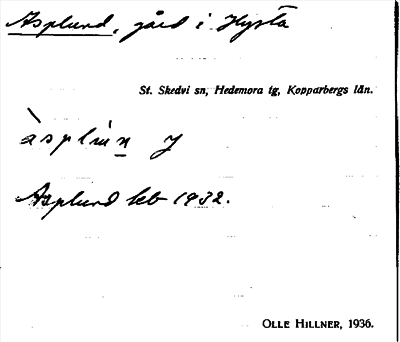 Asplund, gård i Hysta
St. Skedvi sn, Hedemora tg, Kopparbergs län.
àsplùn y
Asplund leb 1932.
OLLE HILLNER, 1936.